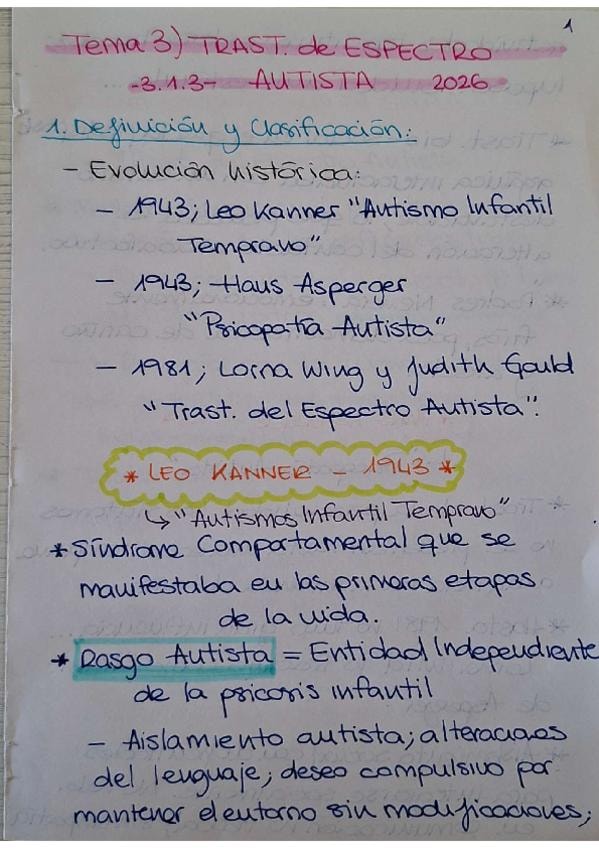 1
Tema 3) TRAST. de ESPECTRO
-3.1.3- AUTISTA 2026
1. Definición y Clasificación:
- Evolución histórica:
- 1943; Leo Kanner "Autismo Infantil
Temprano"
- 1943; Haus Asperger
"Psicopatía Autista"
- 1981; Lorna Wing y Judith Gould
"Trast. del Espectro Autista".
* LEO KANNER - 1943 *
↳ "Autismos Infantil Temprano"
* Síndrome Comportamental que se
manifestaba en las primeras etapas
de la vida.
* Rasgo Autista = Entidad Independiente
de la psicosis infantil
- Aislamiento autista; alteraciones
del lenguaje; deseo compulsivo por
mantener el entorno sin modificaciones;